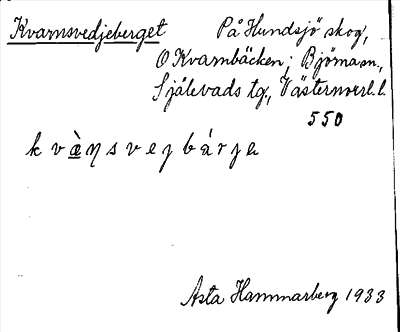 Kvarnsvedjeberget På Hundsjö skog,
O Kvarnbäcken; Björnasn.,
Själevads tg., Västernorrl. l.
550
k v à ŋ s v e j b á r j a
Asta Hammarberg 1933